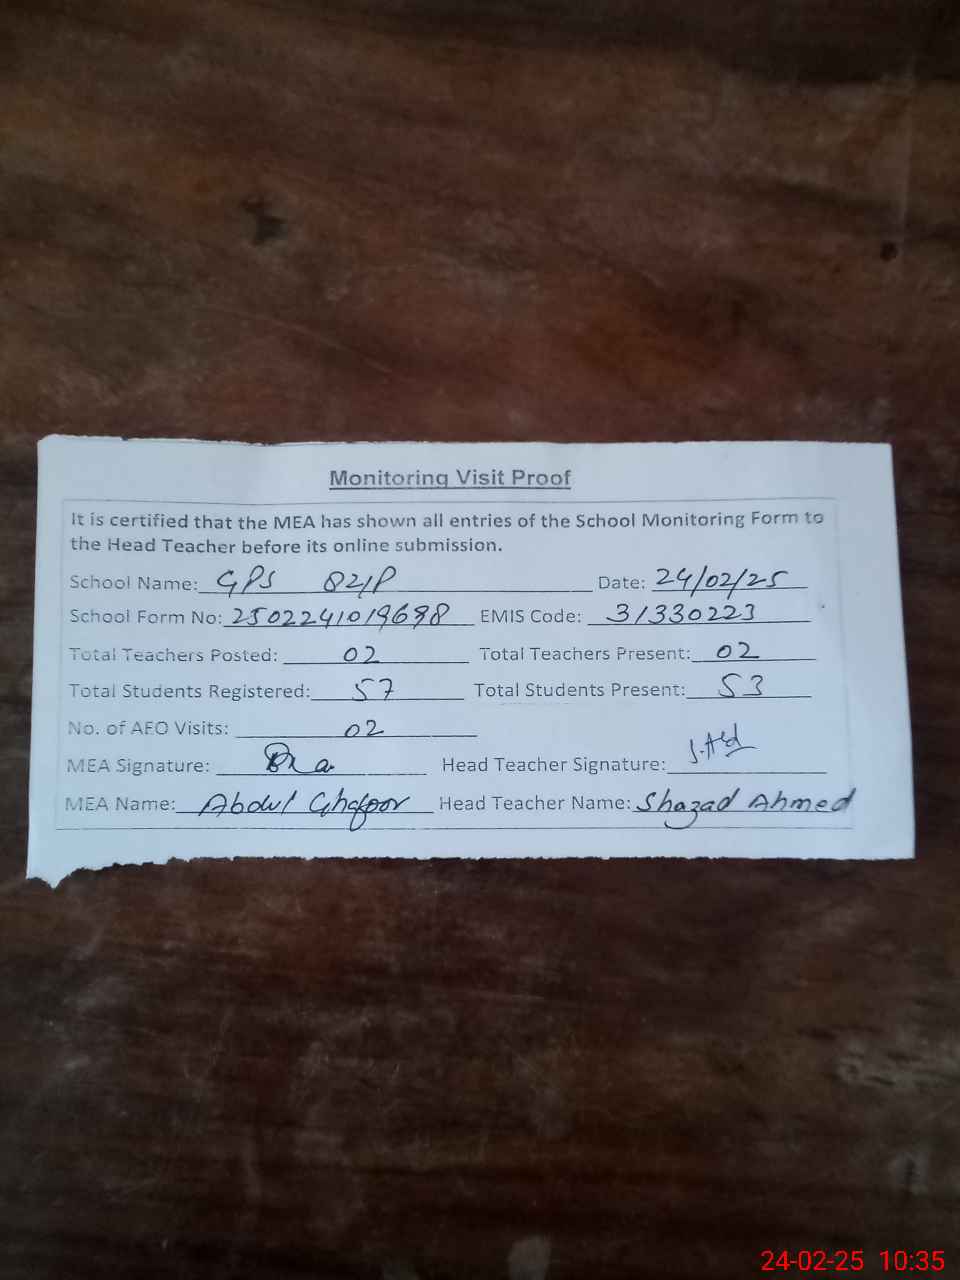 Monitoring Visit Proof
It is certified that the MEA has shown all entries of the School Monitoring Form to
the Head Teacher before its online submission.
School Name: GPS 82/P Date: 24/02/25
School Form No: 2502241019698 EMIS Code: 31330223
Total Teachers Posted: 02 Total Teachers Present: 02
Total Students Registered: 57 Total Students Present: 53
No. of AEO Visits: 02
MEA Signature: Head Teacher Signature:
MEA Name: Abdul Ghafoor Head Teacher Name: Shazad Ahmed
24-02-25 10:35